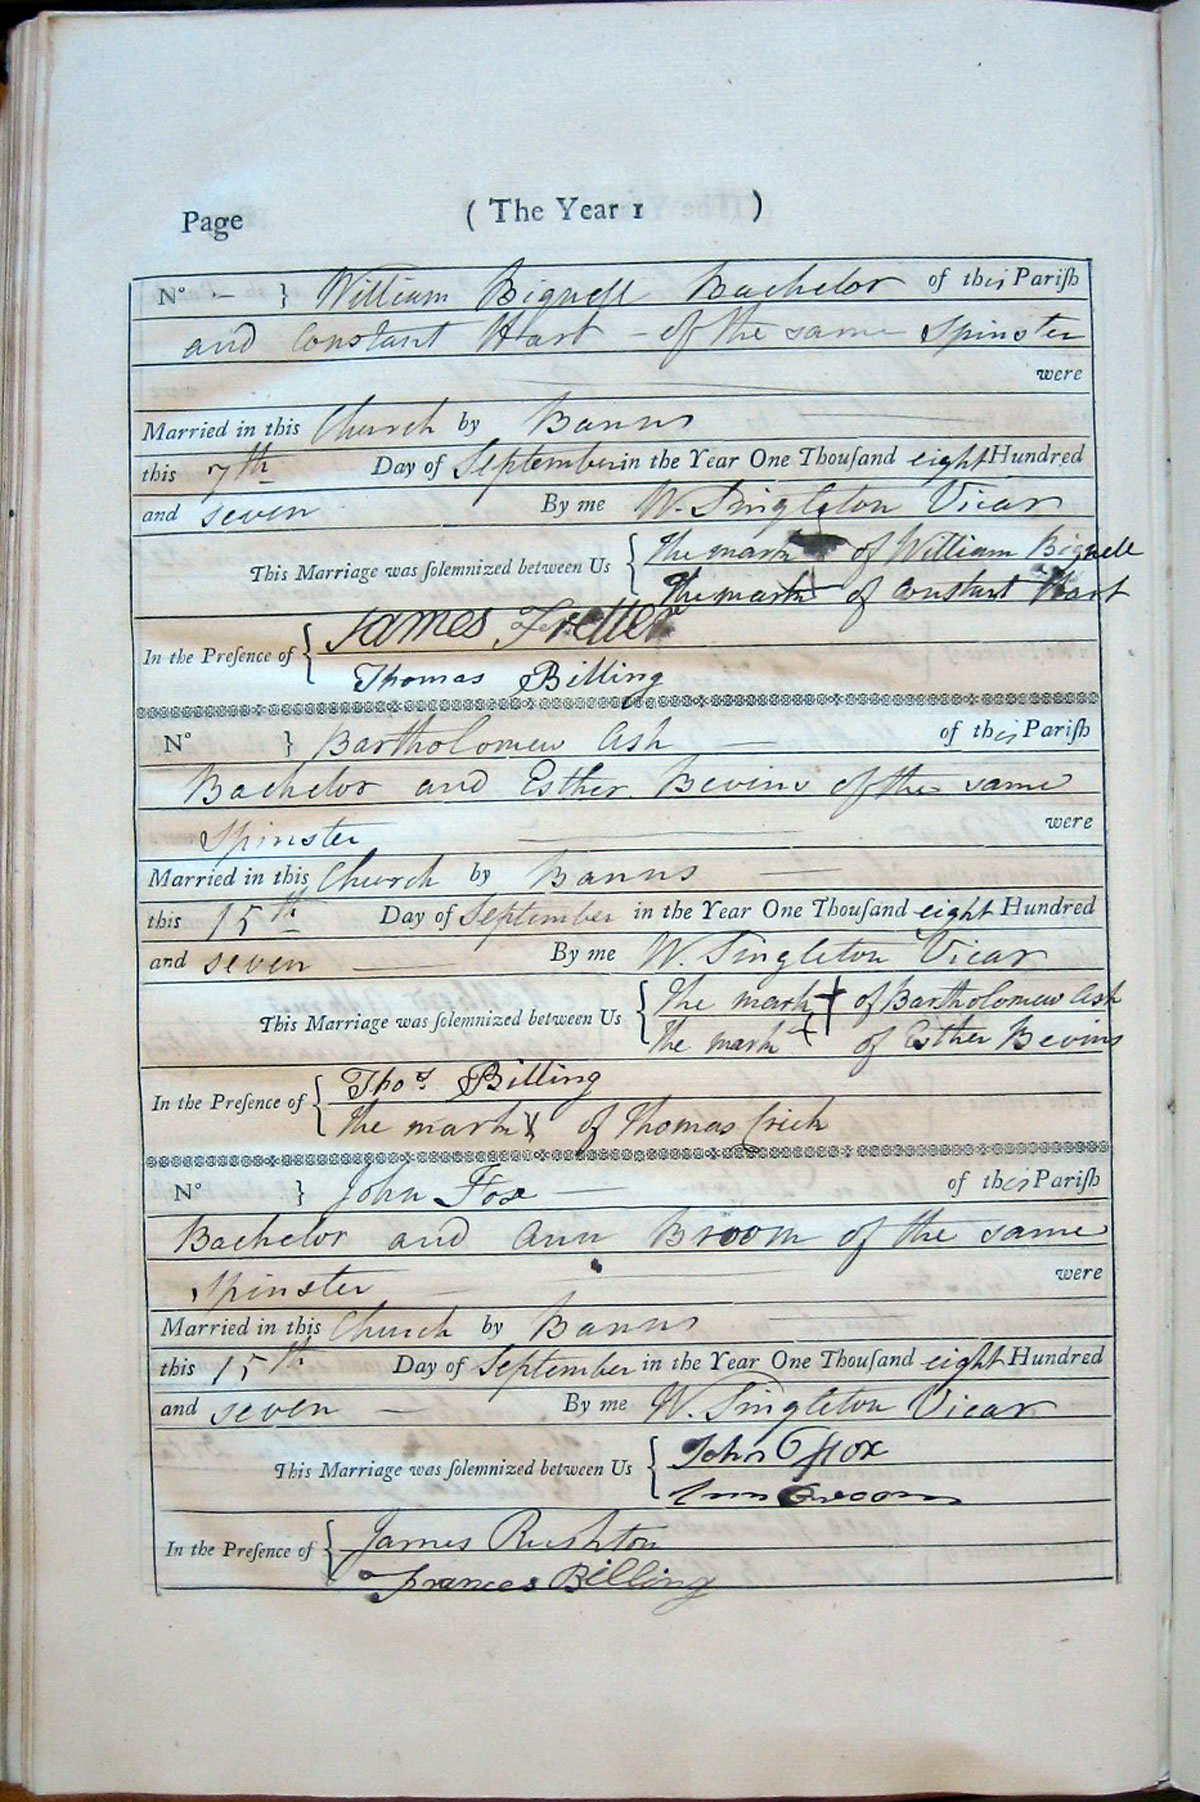 Page ( The Year 1 )
No - } William Bignell Bachelor of this Pariſh
and Constant Hart - of the same Spinster
were
Married in this Church by Banns
this 7th Day of September in the Year One Thouſand eight Hundred
and seven By me W. Singleton Vicar
This Marriage was ſolemnized between Us { The mark of William Bignell
The mark of Constant Hart
In the Preſence of { James Fretter
Thomas Billing
No } Bartholomew Ash - of this Pariſh
Bachelor and Esther Bevins of the same
Spinster were
Married in this Church by Banns
this 15th Day of September in the Year One Thouſand eight Hundred
and seven - By me W. Singleton Vicar
This Marriage was ſolemnized between Us { The mark + of Bartholomew Ash
The mark + of Esther Bevins
In the Preſence of { Thos Billing
The mark X of Thomas Crick
No } John Fox - of this Pariſh
Bachelor and Ann Broom of the same
Spinster were
Married in this Church by Banns
this 15th Day of September in the Year One Thouſand eight Hundred
and seven - By me W. Singleton Vicar
This Marriage was ſolemnized between Us { John Fox
Ann Broom
In the Preſence of { James Rushton
Frances Billing